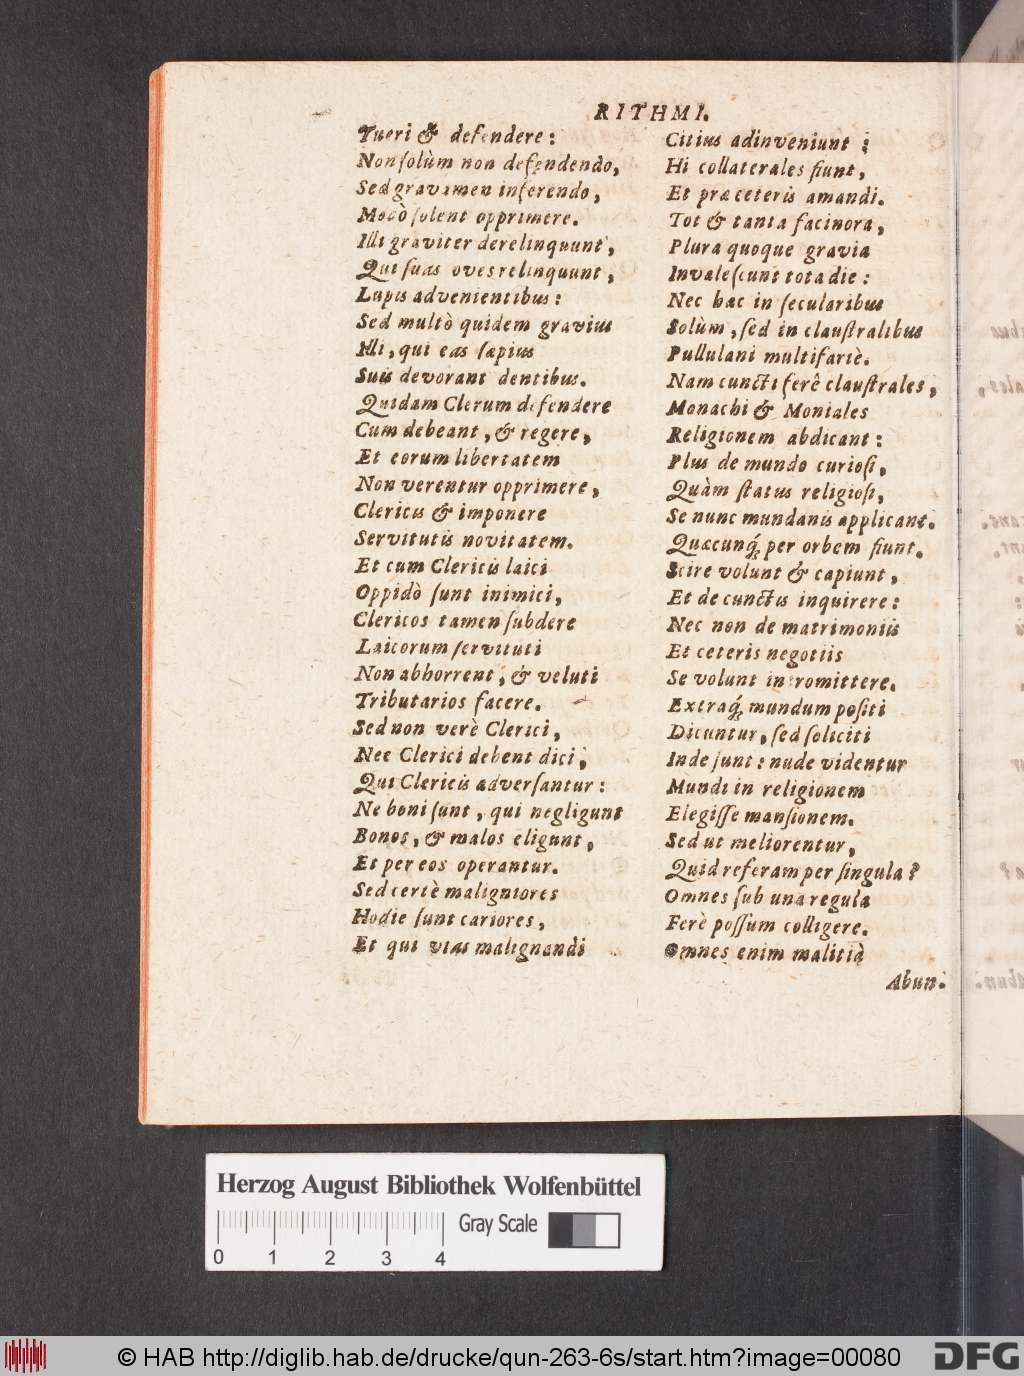 RITHMI.
Tueri & defendere:
Non ſolùm non defendendo,
Sed gravamen inferendo,
Modò ſolent opprimere.
Illi graviter derelinquunt,
Qui ſuas oves relinquunt,
Lupis advenientibus:
Sed multò quidem gravius
Illi, qui eas ſæpius
Suis devorant dentibus.
Quidam Clerum defendere
Cum debeant, & regere,
Et eorum libertatem
Non verentur opprimere,
Clericis & imponere
Servitutis novitatem.
Et cum Clericis laici
Oppidò ſunt inimici,
Clericos tamen ſubdere
Laicorum ſervituti
Non abhorrent, & veluti
Tributarios facere.
Sed non verè Clerici,
Nec Clerici debent dici,
Qui Clericis adverſantur:
Ne boni ſunt, qui negligunt
Bonos, & malos eligunt,
Et per eos operantur.
Sed certè maligniores
Hodie ſunt cariores,
Et qui vias malignandi
Citius adinveniunt;
Hi collaterales fiunt,
Et præ ceteris amandi.
Tot & tanta facinora,
Plura quoque gravia
Invaleſcunt tota die:
Nec hæc in ſecularibus
Solùm, ſed in clauſtralibus
Pullulani multifariè.
Nam cuncti ferê clauſtrales,
Monachi & Moniales
Religionem abdicant:
Plus de mundo curioſi,
Quàm ſtatus religioſi,
Se nunc mundanis applicant.
Quæcunq́; per orbem fiunt.
Scire volunt & capiunt,
Et de cunctis inquirere:
Nec non de matrimoniis
Et ceteris negotiis
Se volunt intromittere.
Extraq́; mundum poſiti
Dicuntur, ſed ſoliciti
Inde ſunt: nude videntur
Mundi in religionem
Elegiſſe manſionem.
Sed ut meliorentur,
Quid referam per ſingula?
Omnes ſub una regula
Ferè poſſum colligere.
Omnes enim malitiâ
Abun-
Herzog August Bibliothek Wolfenbüttel
Gray Scale
0 1 2 3 4
© HAB http://diglib.hab.de/drucke/qun-263-6s/start.htm?image=00080
DFG